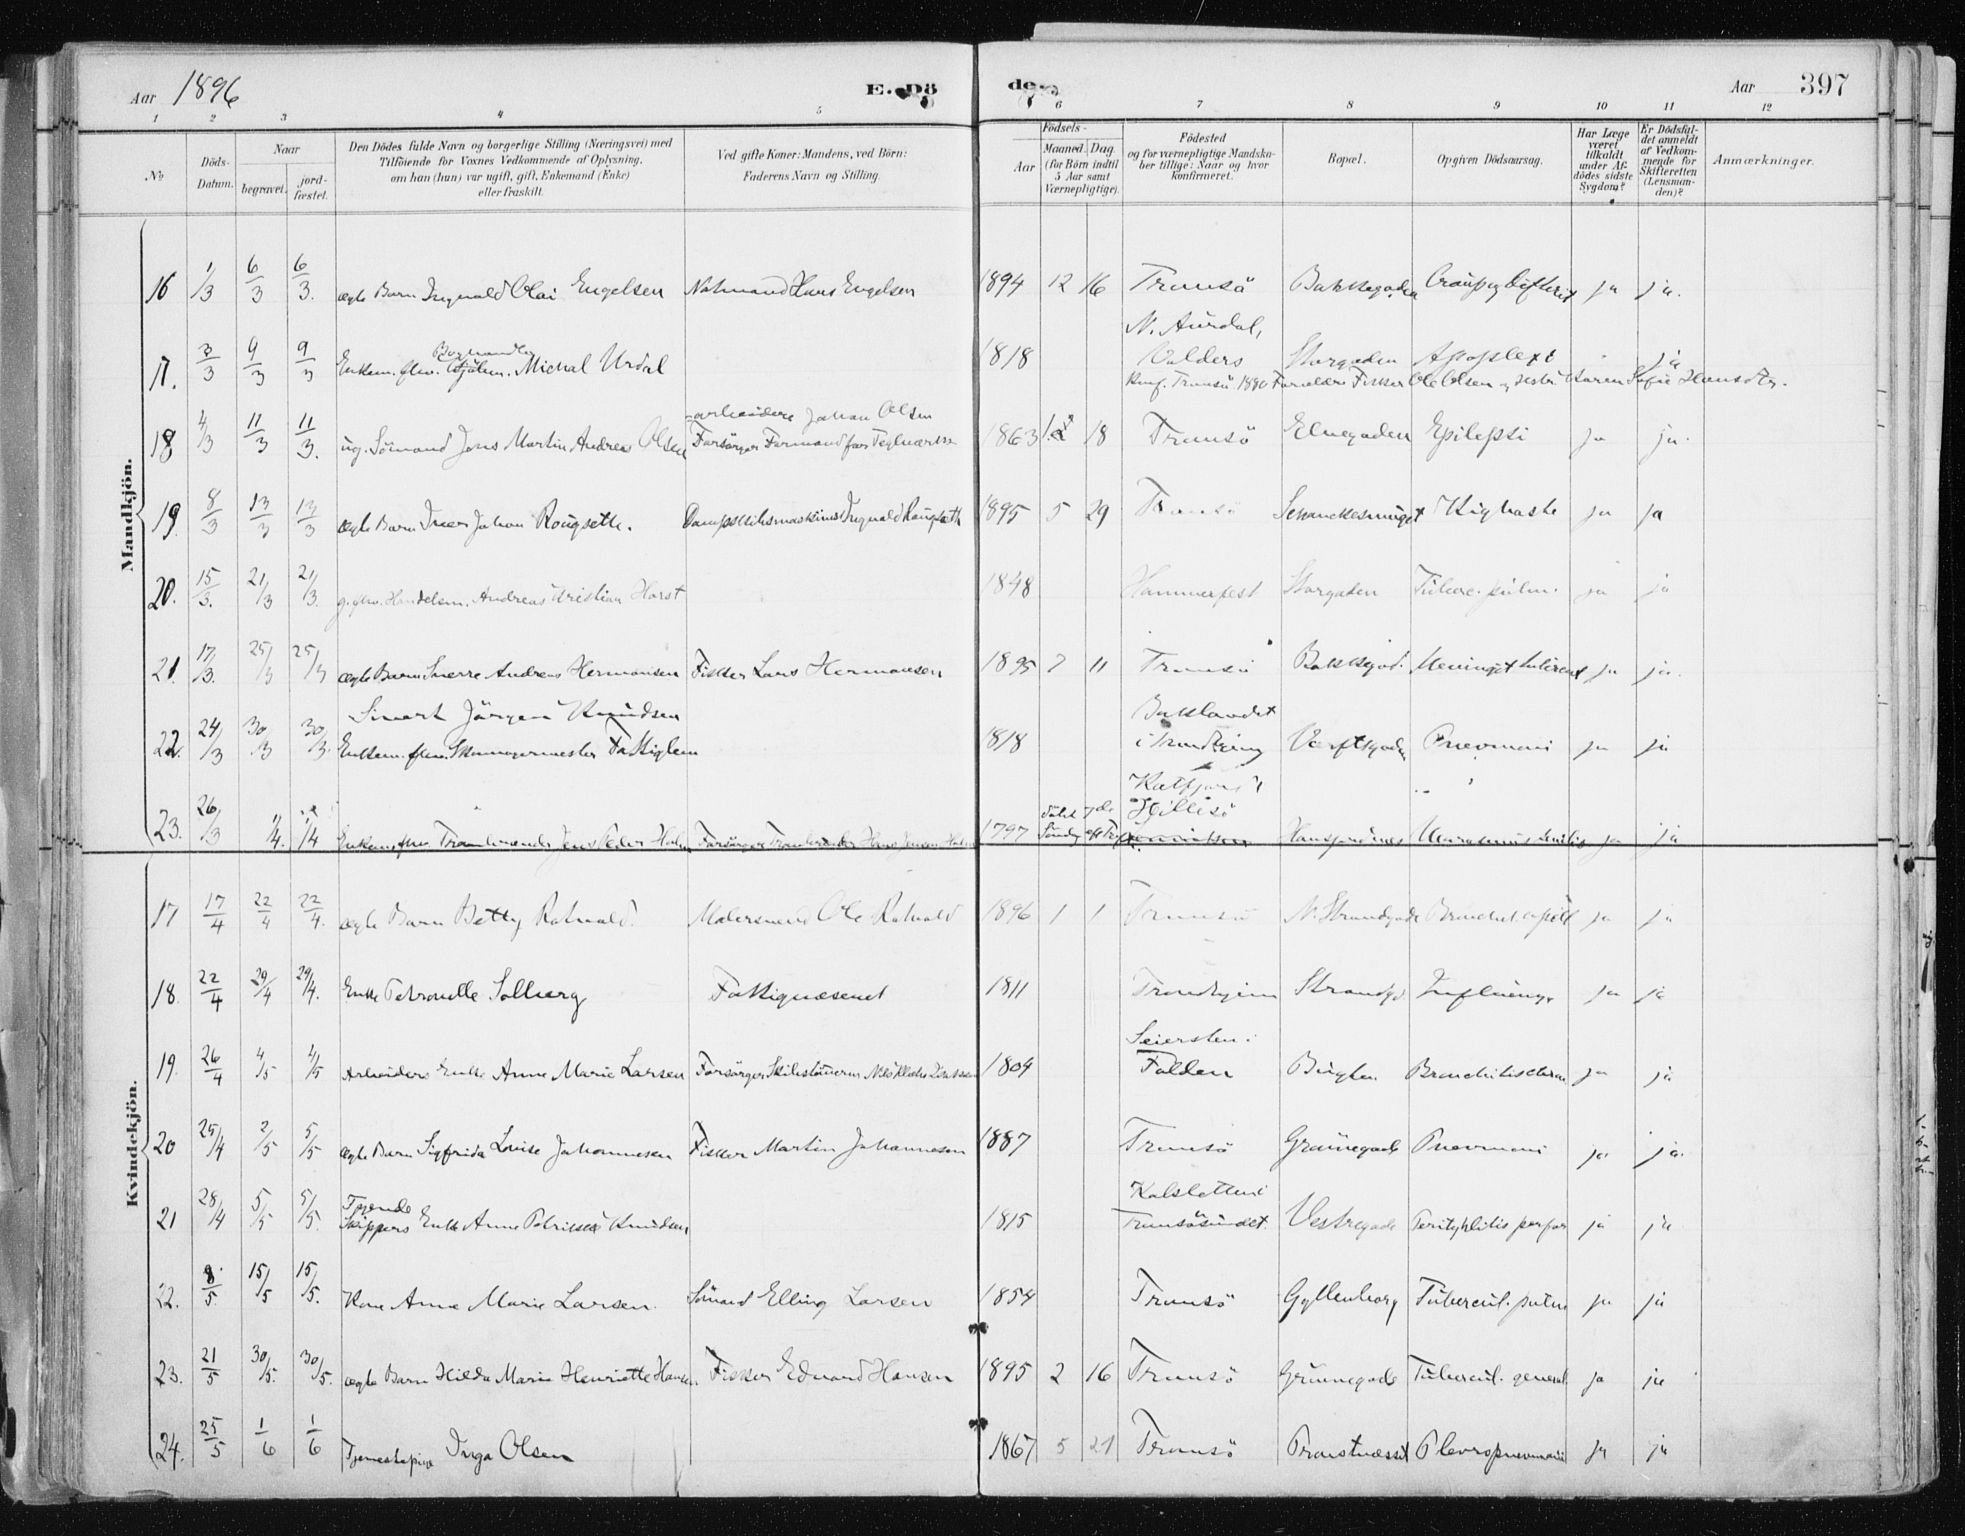 Aar 1896 E. Dö de. Aar 397
1 2 3 4 5 6 7 8 9 10 11 12
No.
Döds-Datum.
Naar
begravet.
jord-fæstet.
Den Dödes fulde Navn og borgerlige Stilling (Næringsvei) med
Tilföiende for Voxnes Vedkommende af Oplysning,
om han (hun) var ugift, gift, Enkemand (Enke)
eller fraskilt.
Ved gifte Koner: Mandens, ved Börn:
Faderens Navn og Stilling.
Födsels-
Aar
Maaned. Dag.
(for Börn indtil
5 Aar samt
Værnepligtige).
Födested
og for værnepligtige Mandska-
ber tillige: Naar og hvor
konfirmeret.
Bopæl.
Opgiven Dödsaarsag.
Har Læge
været
tilkaldt
under Af-
dödes sidste
Sygdom?
Er Dödsfal-
det anmeldt
af Vedkom-
mende for
Skifteretten
(Lensman-
den)?
Anmærkninger.
Mandkjön.
16 1/3 6/3 6/3. ægte Barn Ingvald Olai Engelsen Notmand Hans Engelsen 1894 12 16 Tromsö Bakkegaden Croup og Difterit ja ja.
N. Aurdal,
Boghandler
17. 3/3 9/3 9/3 Enkem. fhv. Michal Urdal 1818 Valders Storgaden Apoplexi ja
Konf. Tromsö 1880 Forældre Fisker Ole Olsen og Hustru Karen Sofie Hansdtr.
arbeidere Johan Olsen
18 4/3 11/3 11/3. ug. Sömand Jens Martin Andreas Olsen Forsörger Formand paa Teglværket 1863 18 Tromsö Elvegaden Epilepsi ja ja.
19. 8/3 13/3 13/3 ægte Barn Johan Rougsette. Dampskibsmaskinist Ingvald Rougsette 1895 5 29 Tromsö Kighoste ja ja
20. 15/3. 21/3 21/3. g. fhv. Handelsm. Andreas Kristian Horst 1848 Hammerfest Storgaden Tuberc. pulm. ja ja
21. 17/3. 25/3 25/3 ægte Barn Sverre Andreas Hermansen Fisker Lars Hermansen 1895 7 11 Tromsö Bakkegad. Meningit tuberent ja ja.
Sivert Jörgen Knudsen Baklandet
22. 24/3 30/3 30/3. Enkem. fhv. Skomagermester Fattiglem 1818 i Trondhjem Værftsgaden Pnevmoni ja ja
Hillisö
23. 26/3 1/4. 1/4 Enkem. fhv. Tranbrænder Jens Peder Holm Forsörger Tranbrænder Hans Jensen Holm 1797 Hansjordnes Marasmus senilis ja ja
Kvindekjön.
17 17/4 22/4 22/4. ægte Barn Betty Rotvald. Malersvend Ole Rotvold 1896 1 1 Tromsö N. Strandgade Bronchit capill ja ja
18. 22/4 29/4 29/4. Enke Petronelle Solberg Fattigvæsenet 1811 Trondhjem Strandgd. Influenza ja ja
Seiersten i
19. 26/4 4/5 4/5 Arbeiders Enke Anne Marie Larsen Forsörger 1804 Folden Bronchitis chron ja ja
20 25/4 2/5 5/5 ægte Barn Sigfrida Louise Johannesen Fisker Martin Johannesen 1887 Tromsö Grönnegade Pnevmoni ja. ja.
Tyende Kalsletten i
21 28/4 5/5 5/5. Skippers Enke Anne Petrikke Knudsen 1815 Tromsösundet Vestregade Perityphlitis perfor ja ja
22. 8/5 15/5 15/5. Kone Anne Marie Larsen. Sömand Elling Larsen 1854 Tromsö Gyllenborg Tubercul. pulm ja ja
23. 21/5 30/5. 30/5. ægte Barn Hilda Marie Henriette Hansen Fisker Edvard Hansen 1895 2 16 Tromsö Grönnegade Tubercul. general ja ja
24. 25/5 1/6 1/6 Tjenestepige Inga Olsen 1867 5 21 Tromsö Provstnæsset Plevropnevmoni ja ja